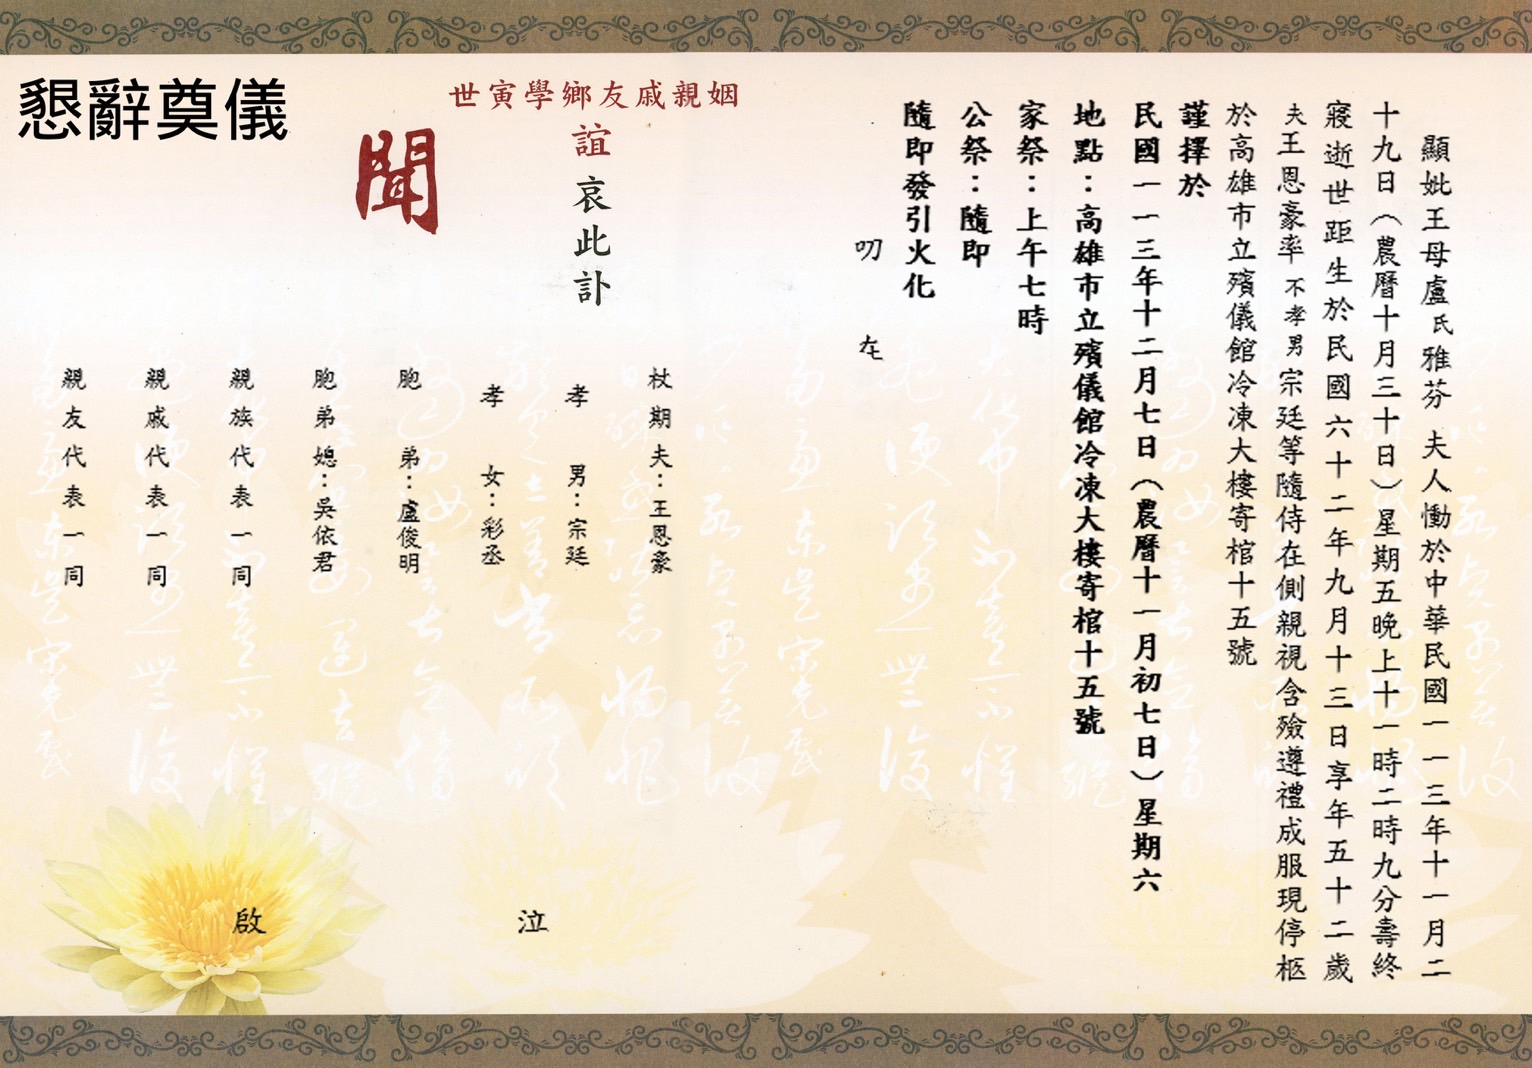 顯妣王母盧氏雅芬 夫人慟於中華民國一一三年十一月二
十九日(農曆十月三十日)星期五晚上十一時二時九分壽終
寢逝世距生於民國六十二年九月十三日享年五十二歲
夫王恩豪率 不孝男宗廷等隨侍在側親視含殮遵禮成服現停柩
於高雄市立殯儀館冷凍大樓寄棺十五號
謹擇於
民國一一三年十二月七日(農曆十一月初七日)星期六
地點:高雄市立殯儀館冷凍大樓寄棺十五號
家祭:上午七時
公祭:隨即
隨即發引火化
叨 在
姻親戚友鄉學寅世
誼 哀此訃
聞
懇辭奠儀
杖期夫:王恩豪
孝男:宗廷
孝女:彩丞
胞弟:盧俊明
胞弟媳:吳依君
泣
親族代表一同
親戚代表一同
親友代表一同
啟